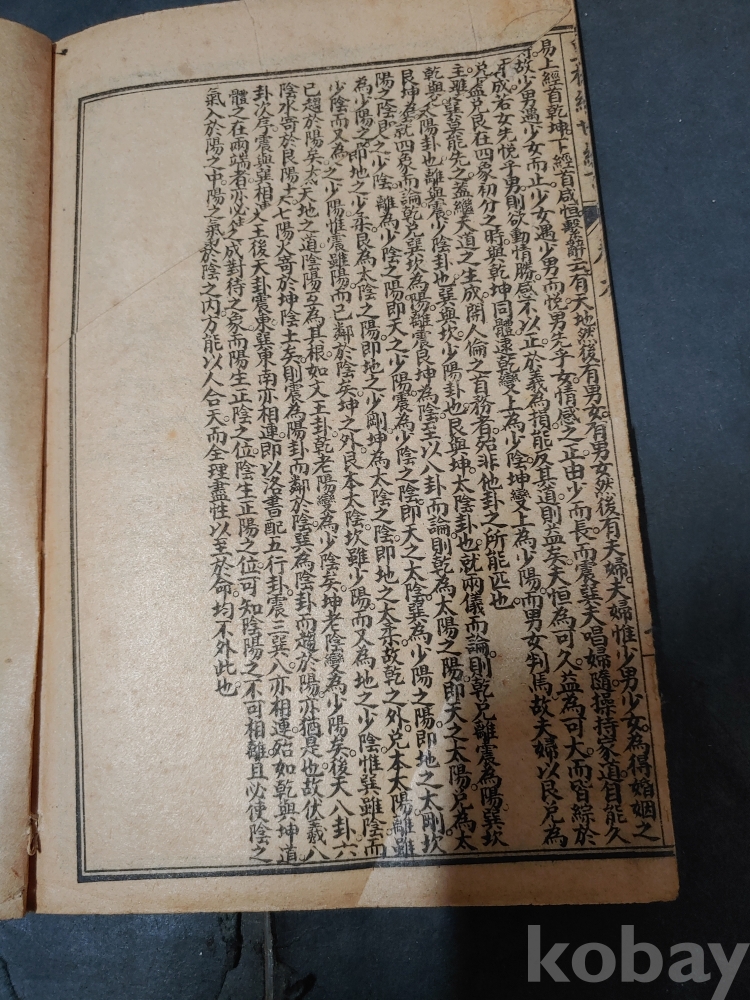 易上經首乾坤下經首咸恒繫辭云有天地然後有男女有男女然後有夫婦夫婦惟少男少女為得婚姻之
故少男遇少女而止少女遇少男而悅男先乎女情感之正由少而長而震巽夫唱婦隨操持家道自能久
成若女先悅乎男則欲動情勝感不以正於義為損能反其道則益矣夫恒為可久益為可大而皆綜於
兌蓋兌艮在四象初分之時與乾坤同體逮乾變上為少陰坤變上為少陽而男女判焉故夫婦以艮兌為
主雖震巽莫能先之蓋繼天道之生成開人倫之首務者殆非他卦之所能匹也
乾與兌太陽卦也離與震少陰卦也巽與坎少陽卦也艮與坤太陰卦也就兩儀而論則乾兌離震為陽巽坎
艮坤為陰就四象而論乾兌巽坎為陽離震艮坤為陰至以八卦而論則乾為太陽之陽即天之太陽兌為太
陽之陰即天之少陰離為少陰之陽即天之少陽震為少陰之陰即天之太陰巽為少陽之陽即地之太剛坎
為少陽之陰即地之少柔艮為太陰之陽即地之少剛坤為太陰之陰即地之太柔故乾之外兌本太陽離雖
少陰而又為天之少陽惟震雖陽而已鄰於陰矣坤之外艮本太陰坎雖少陽而又為地之少陰惟巽雖陰而
已趨於陽矣大哉天地之道陰陽互為其根如文王卦乾老陽變為少陰矣坤老陰變為少陽矣後天八卦六
陰水寄於艮陽土七陽火寄於坤陰土矣則震為陽卦而鄰於陰巽為陰卦而趨於陽亦猶是也故伏羲八
卦次序震與巽相連文王後天卦震東巽東南亦相連即以洛書配五行卦震三巽八亦相連始如乾與坤道
體之在兩端者亦必使之成對待之象而陽生正陰之位陰生正陽之位可知陰陽之不可相離且必使陰之
氣入於陽之中陽之氣於陰之內方能以人合天而全理盡性以至於命均不外此也
kobay